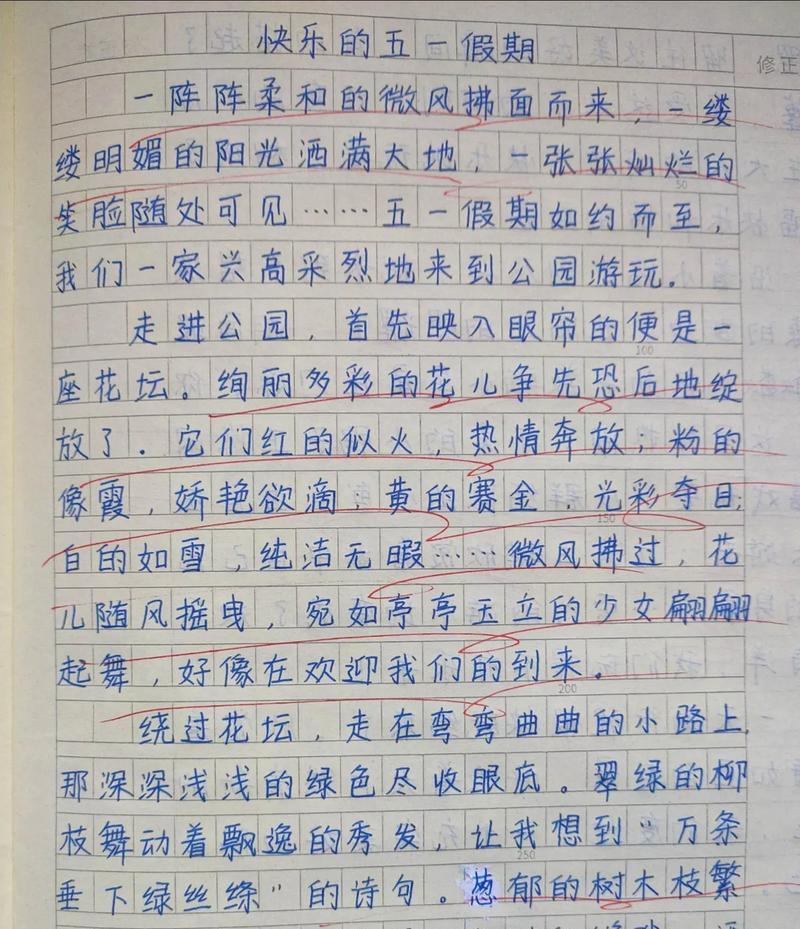 快乐的五一假期
修正
一阵阵柔和的微风拂面而来，一缕
缕明媚的阳光洒满大地，一张张灿烂的
50
笑脸随处可见……五一假期如约而至，
我们一家兴高采烈地来到公园游玩。
走进公园，首先映入眼帘的便是一
100
座花坛。绚丽多彩的花儿争先恐后地绽
放了．它们红的似火，热情奔放；粉的
像霞，娇艳欲滴；黄的赛金，光彩夺目；
150
白的如雪，纯洁无暇……微风拂过，花
儿随风摇曳，宛如亭亭玉立的少女翩翩
起舞，好像在欢迎我们的到来。
200
绕过花坛，走在弯弯曲曲的小路上，
那深深浅浅的绿色尽收眼底。翠绿的柳
枝舞动着飘逸的秀发，让我想到“万条
250
垂下绿丝绦”的诗句。葱郁的树木枝繁